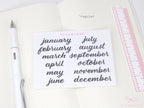 january july
february august
march september
april october
may november
june december